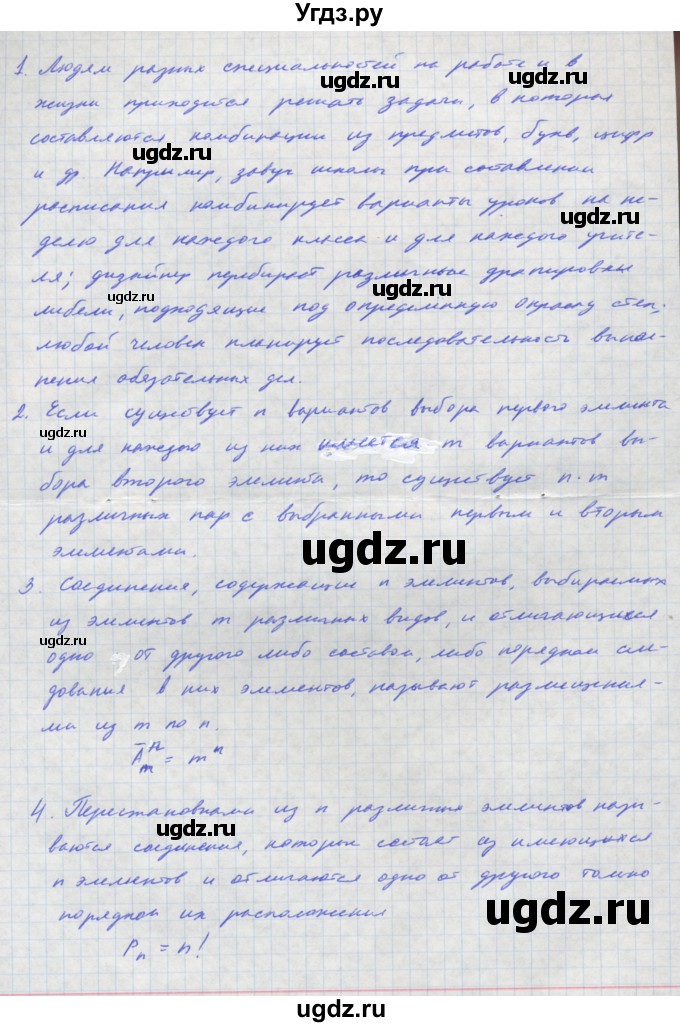 Угдз.ру
1. Людям разных специальностей на работе и в
жизни приходится решать задачи, в которых
составляются комбинации из предметов, букв, цифр
и др. Например, завуч школы при составлении
расписания комбинирует варианты уроков на не-
делю для каждого класса и для каждого учите-
ля; дизайнер перебирает различные драпировки
мебели, подходящие под определенную окраску стен;
любой человек планирует последовательность выпол-
нения обязательных дел.
2. Если существует n вариантов выбора первого элемента
и для каждого из них имеется m вариантов вы-
бора второго элемента, то существует n·m
различных пар с выбранными первым и вторым
элементами.
3. Соединения, содержащие n элементов, выбираемых
из элементов m различных видов, и отличающихся
одно от другого либо составом, либо порядком сле-
дования в них элементов, называют размещения-
ми из m по n.
Ā_m^n = m^n
4. Перестановками из n различных элементов назы-
ваются соединения, которые состоят из имеющихся
n элементов и отличаются одно от другого только
порядком их расположения
P_n = n!
ugdz.ru
ugdz.ru
ugdz.ru
ugdz.ru
ugdz.ru
ugdz.ru
ugdz.ru
ugdz.ru
ugdz.ru
ugdz.ru
ugdz.ru
ugdz.ru
ugdz.ru